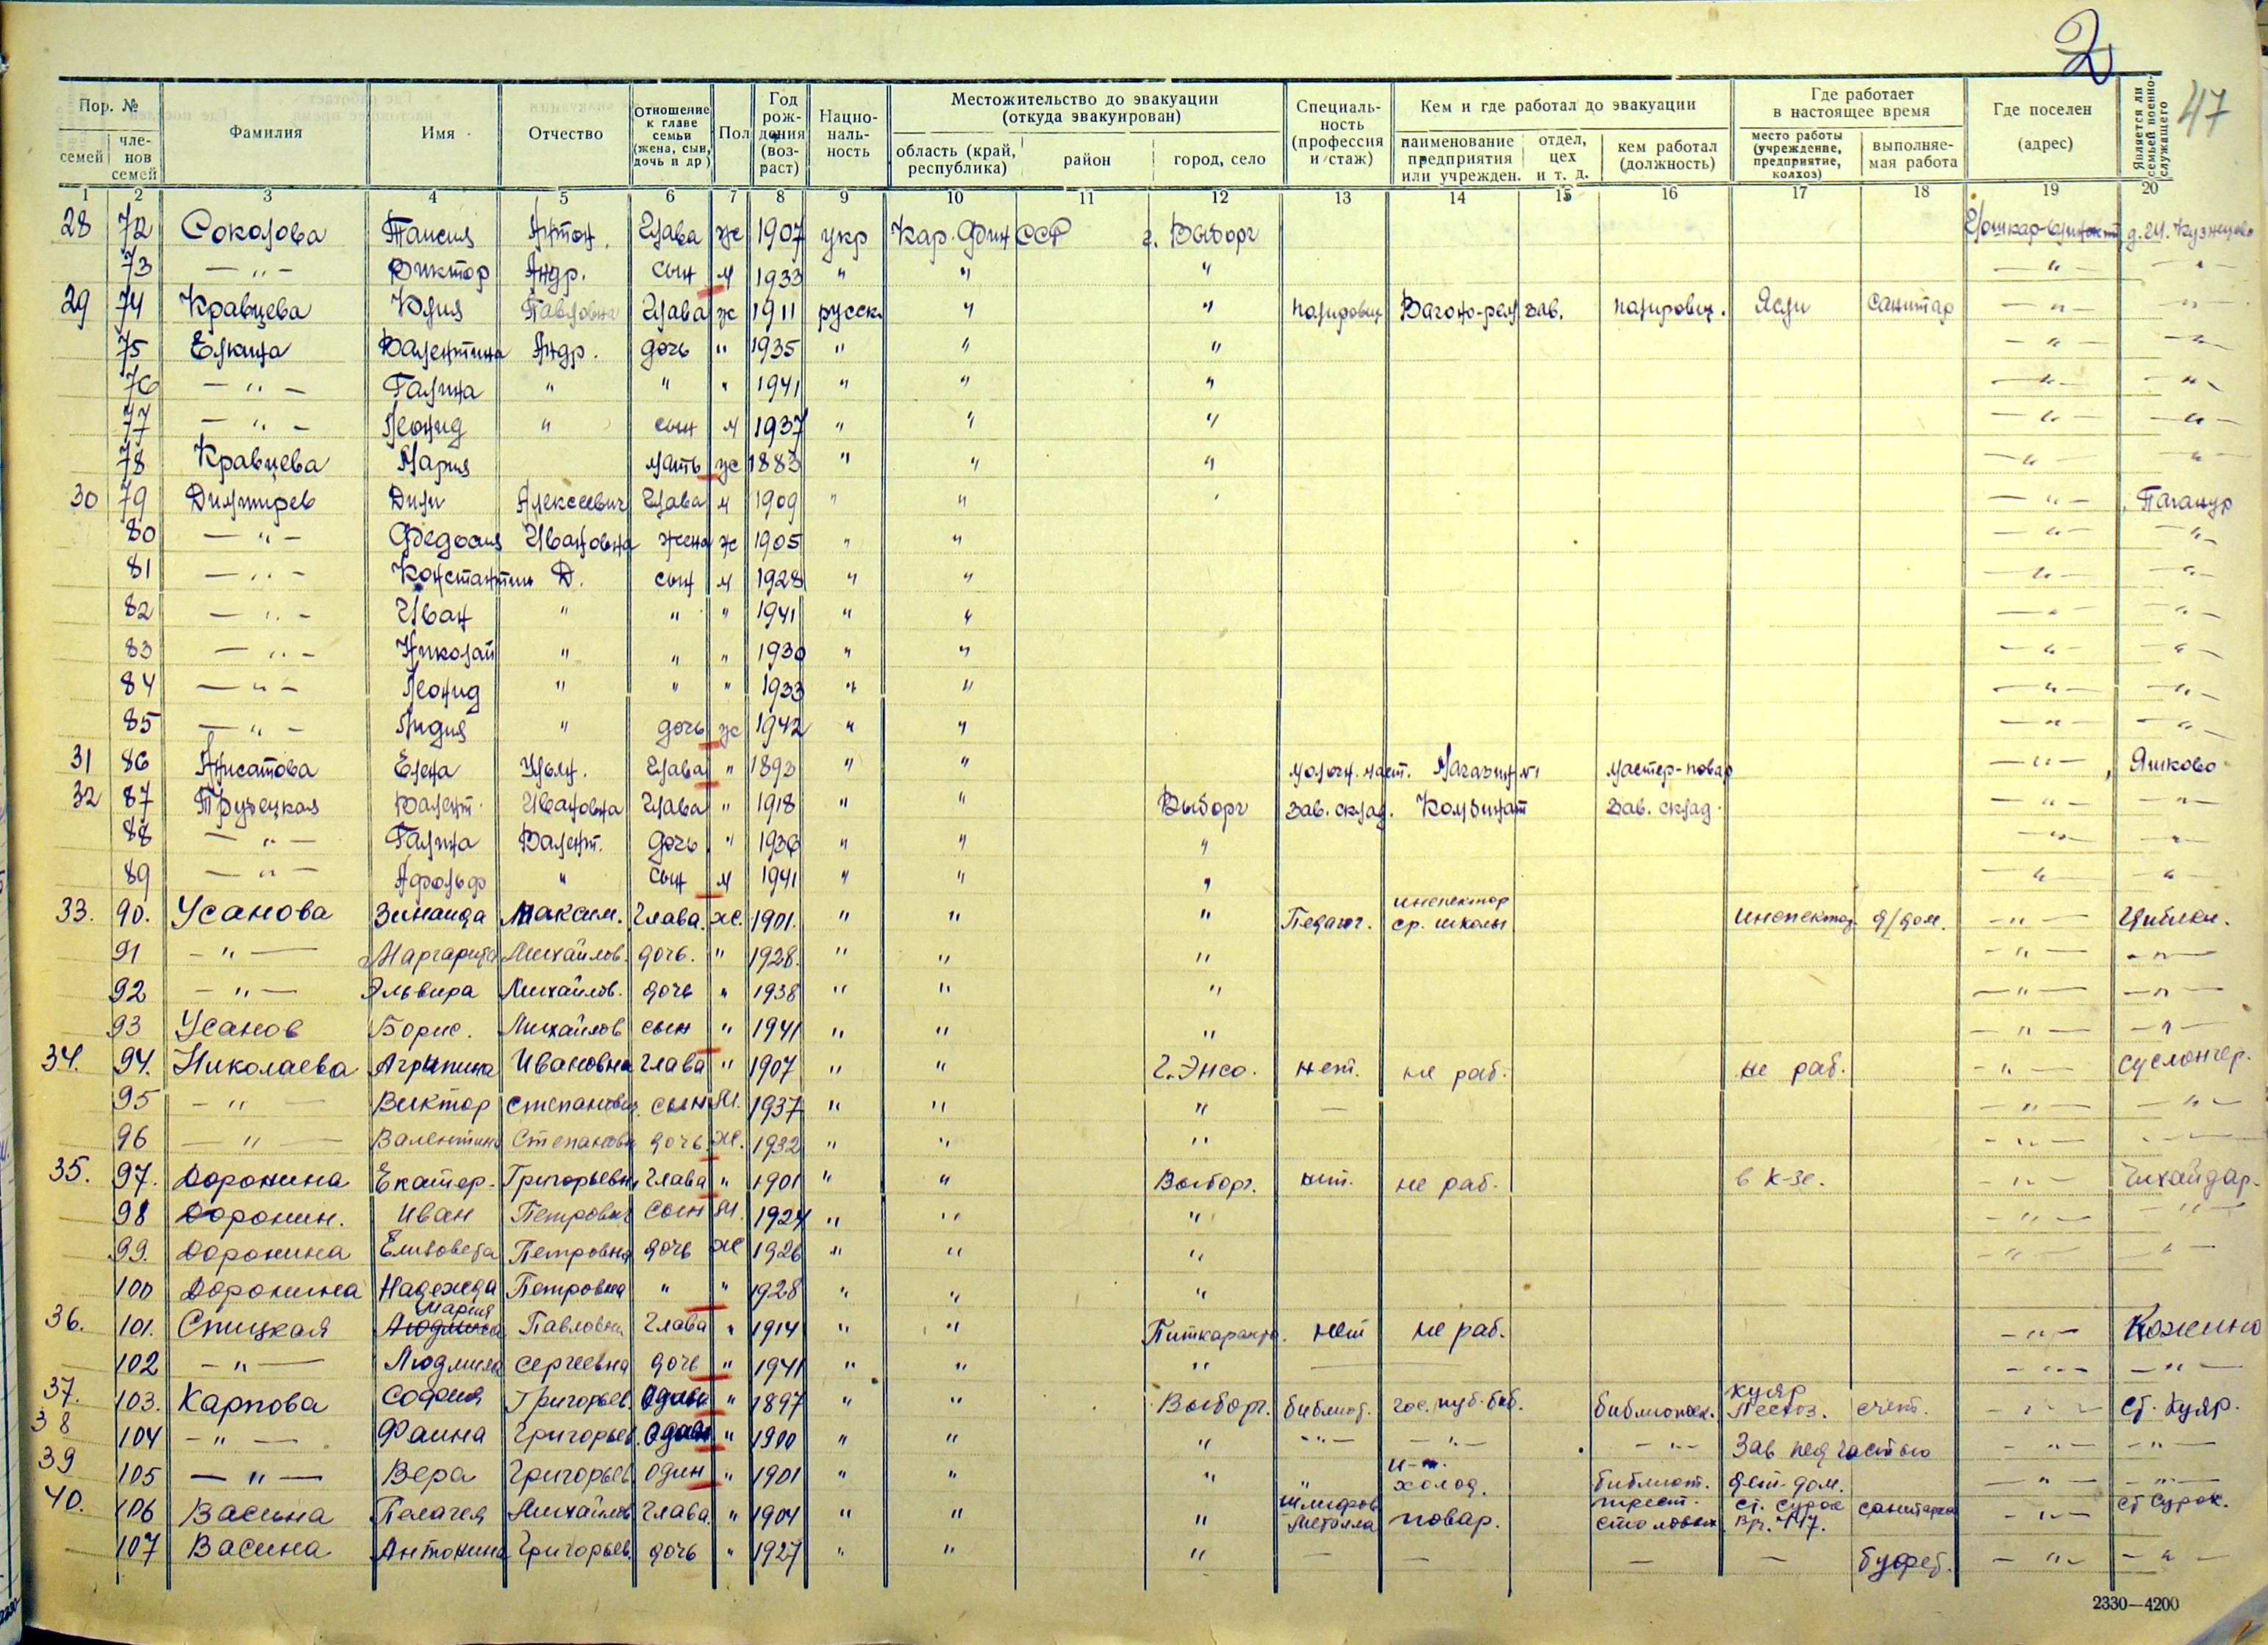 2
47
Пор. №
семей
членов семей
Фамилия
Имя
Отчество
Отношение к главе семьи (жена, сын, дочь и др)
Пол
Год рождения (возраст)
Национальность
Местожительство до эвакуации (откуда эвакуирован)
область (край, республика)
район
город, село
Специальность (профессия и стаж)
Кем и где работал до эвакуации
наименование предприятия или учрежден.
отдел, цех и т. д.
кем работал (должность)
Где работает в настоящее время
место работы (учреждение, предприятие, колхоз)
выполняемая работа
Где поселен (адрес)
Является ли семьей военнослужащего
1 2 3 4 5 6 7 8 9 10 11 12 13 14 15 16 17 18 19 20
28 72 Соколова Таисия Антон. Глава ж 1907 укр Кар. Фин ССР г. Выборг д. М. Кузнецово
73 — " — Виктор Андр. сын м 1933 " " " — " — "
29 74 Кравцева Юлия Павловна Глава ж 1911 русск " " полировщ. Вагоно-рем. зав. полировщ. Ясли санитар — " — "
75 Елкина Валентина Андр. дочь " 1935 " " " — " — "
76 — " — Галина " " " 1941 " " — " — "
77 — " — Леонид " сын м 1937 " " " — " — "
78 Кравцева Мария мать ж 1883 " " " — " — "
30 79 Димитрев Дили Алексеевич Глава м 1909 " " ' — " — Паганур
80 — " — Федосия Ивановна жена ж 1905 " " — " — "
81 — " — Константин Д. сын м 1928 " " — " — "
82 — " — Иван " " " 1941 " " — " — "
83 — " — Николай " " " 1930 " " — " — "
84 — " — Леонид " " " 1933 " " — " — "
85 — " — Лидия " дочь ж 1942 " " — " — "
31 86 Елена Ульян. Глава " 1893 " " Магазин №1 мастер-повар — " — Яшково
32 87 Трубецкая Валент. Ивановна Глава " 1918 " " Выборг Зав. склад. Комбинат Зав. склад. — " — "
88 — " — Галина Валент. дочь " 1936 " " " — " — "
89 — " — Адольф " сын м 1941 " " " — " — "
33. 90. Усанова Зинаида Максим. Глава. ж. 1901. " " " Педагог. инспектор ср. школы инспектор. д/дом. — " —
91 — " — Маргарита Михайлов. дочь. " 1928. " " " — " — "
92 — " — Эльвира Михайлов. дочь " 1938 " " " — " — "
93 Усанов Борис. Михайлов сын " 1941 " " " — " — "
34. 94. Николаева Агрипина Ивановна Глава " 1907 " " г. Энсо. нет. не раб. не раб. — " — Суслонгер.
95 — " — Виктор Степанович. сын м. 1937 " " " — — " — "
96 — " — Валентина Степановн дочь ж. 1932 " " " — " —
35. 97. Доронина Екатер. Григорьевн Глава " 1901 " " Выборг. нет. не раб. в к-зе. — " — Чихайдар.
98 Доронин. Иван Петрович сын м. 1924 " " " — " — "
99. Доронина Елизовета Петровна дочь ж 1926 " " " — " — "
100 Доронина Надежда Петровна " " 1928 " " "
36. 101. Спицкая Людмила Мария Павловна Глава " 1914 " " Питкаранта. нет не раб. — " — Кожино
102 — " — Людмила Сергеевна дочь " 1941 " " " — — " — "
37. 103. Карпова София Григорьев. Один " 1897 " " Выборг. библиот. гос. пуб. биб. библиотек. Куяр Лесхоз. счет. — " — ст. Куяр.
38 104 — " — Фаина Григорьев. Один " 1900 " " " — " — — " — — " — Зав пед частью — " — "
39 105 — " — Вера Григорьев. один " 1901 " " " " и-т. холод. библиот. дет. дом. — " — "
40. 106 Васина Пелагея Михайлов Глава. " 1904 " " " шлифов металла повар. трест. столовых ст. Сурок санитарка — " — ст Сурок.
107 Васина Антонина Григорьев. дочь " 1927 " " " — — — — буфет. — " — "
2330—4200